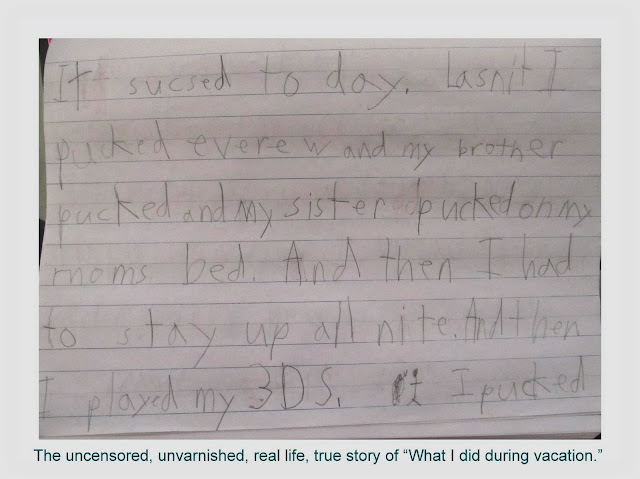 It sucsed to day. Lasnit I
pucked evere w and my brother
pucked and my sister pucked on my
moms bed. And then I had
to stay up all nite. And then
I played my 3DS. I pucked
The uncensored, unvarnished, real life, true story of “What I did during vacation.”